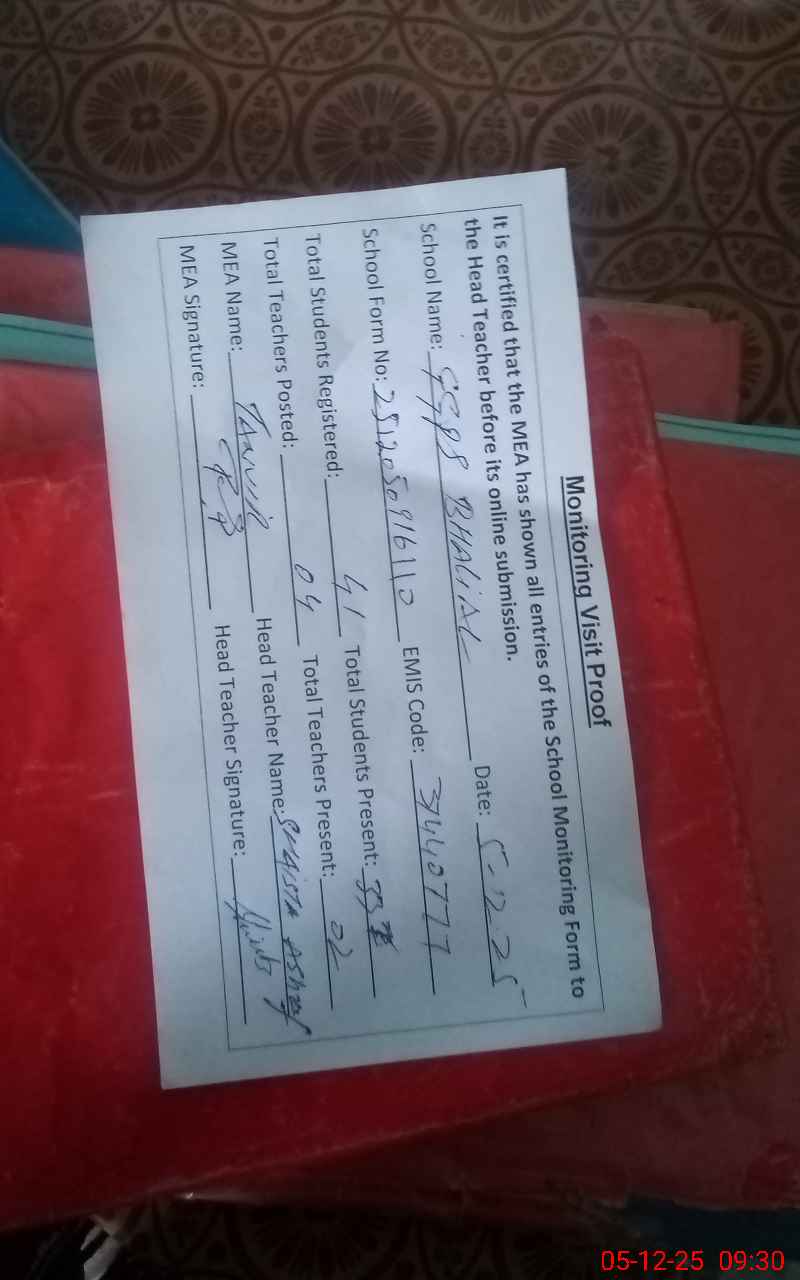 Monitoring Visit Proof
It is certified that the MEA has shown all entries of the School Monitoring Form to
the Head Teacher before its online submission.
School Name: GGPS BHALIAL Date: 5-12-25
School Form No: 2512050916110 EMIS Code: 37440777
Total Students Registered: 41 Total Students Present: 33
Total Teachers Posted: 04 Total Teachers Present: 02
MEA Name: TANVIR Head Teacher Name: SHAISTA ASHraf
MEA Signature: Head Teacher Signature:
05-12-25 09:30